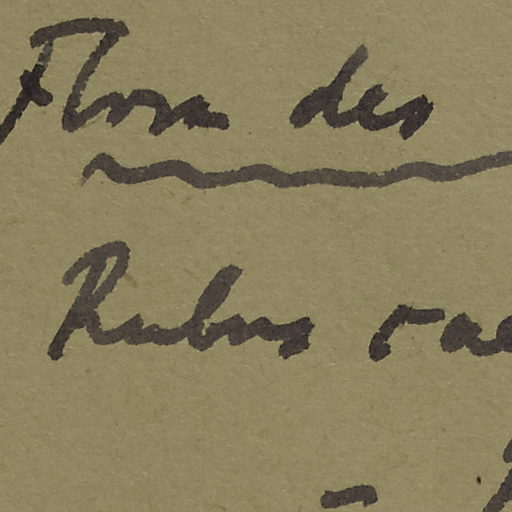 Flora des
Rubus cae